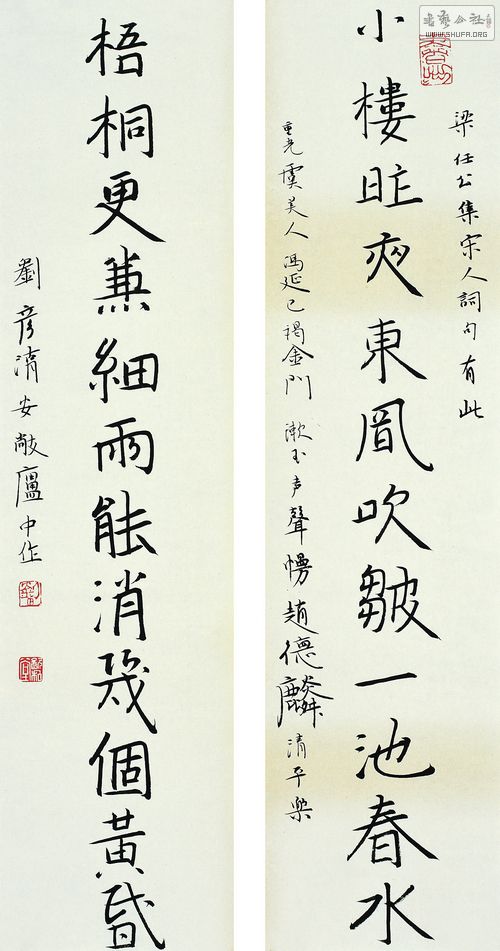 書藝公社
WWW.SHUFA.ORG
梁任公集宋人詞句有此
小樓昨夜東風吹皺一池春水
重光虞美人 馮延巳謁金門 漱玉声聲慢 趙德麟清平樂
梧桐更兼細雨能消幾個黃昏
劉彥湖安敞廬中作